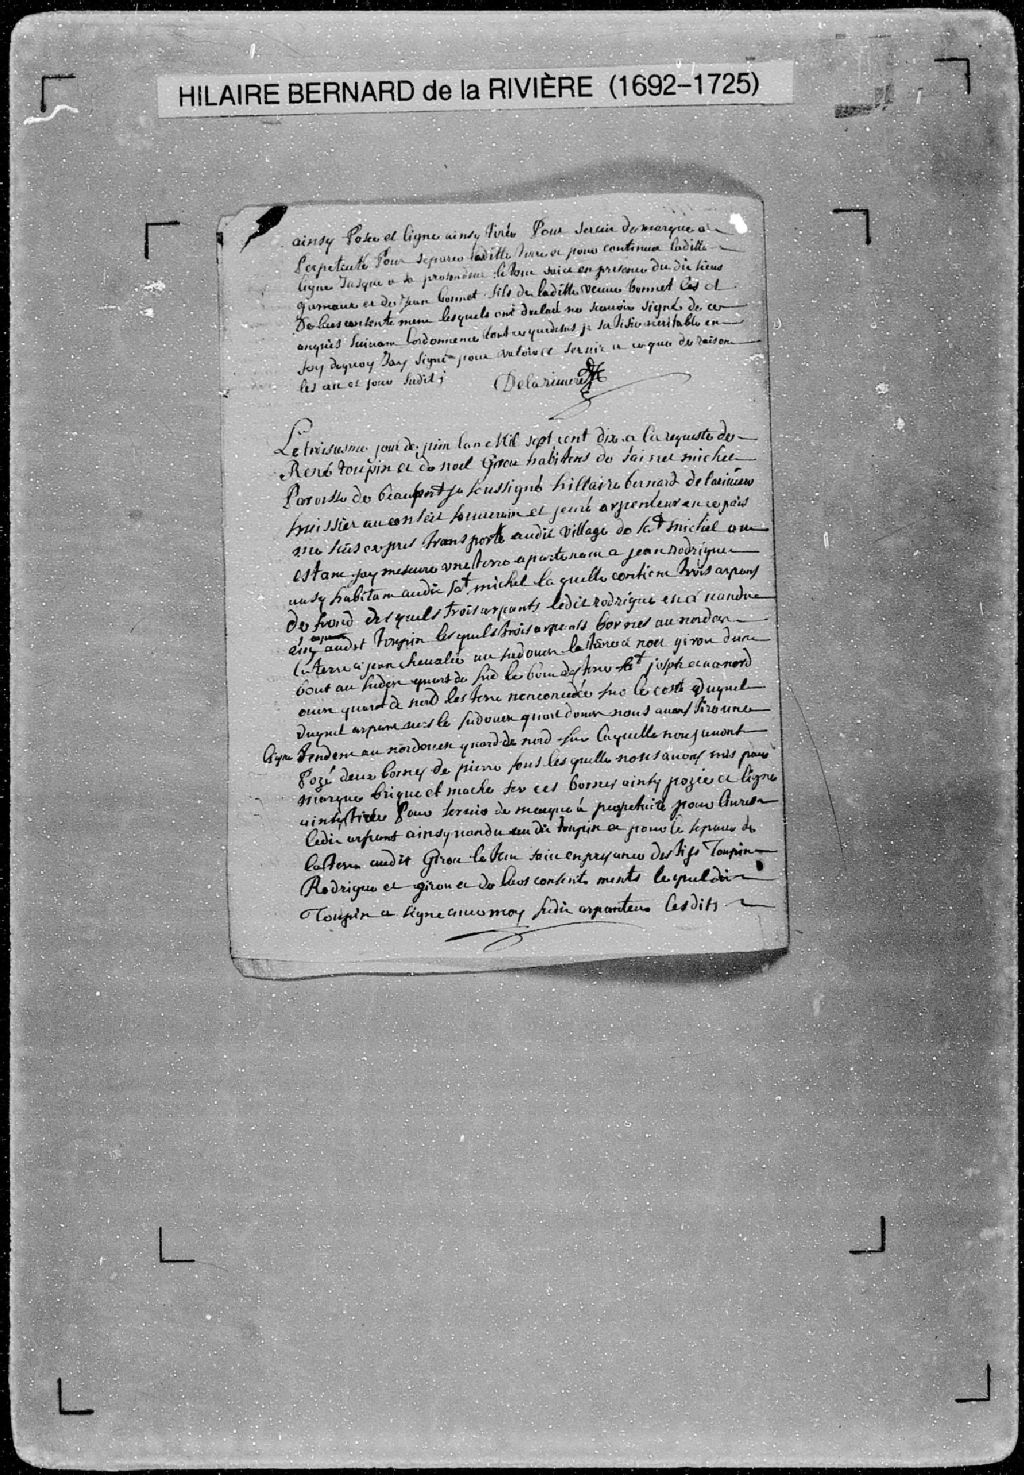 HILAIRE BERNARD de la RIVIÈRE (1692–1725)
ainsy Posee et ligne ainsy tirée Pour servir de marque a
Perpetuité Pour separer laditte terre et pour continuer laditte
ligne Jusque a la profondeur le tout faict en presence du dit sieurs
et de Jean bonnet fils de laditte veuve bonnet Les et
De leur consentement lesquels ont declaré ne scavoir signé de ce
enquis suivant Lordonnance tout ce que dessus je certifie veritable en
foy dequoy Jay signé pour valoir et servir a ce que de raison
les an et jour susdit ;
Delariviere
Le troisiesme jour de juin lan Mil sept cent dix a la requeste de
René toupin et de noel Girou habitans de sainct michel
Paroisse de beauport je soussigné hillaire bernard de lariviere
huissier au conseil souverain et juré arpenteur en ce païs
me suis exprès transporté audit village de St michel ou
estant jay mesuré une terre apartenant a jean rodrigue
aussy habitant audit St michel laquelle contient trois arpans
de frond desquels trois arpants ledit rodrigue en a vandu
audit toupin lesquels trois arpents bornés au nordest
la terre a jean chevalier au sudouest la terre a noel girou dun
bout au sudest quart de sud le bout des terre St joseph et au nord
ouest quart de nord les terre nonconcedée sur le costé duquel
duquel arpent vers le sudouest quart douest nous avons tiré une
ligne Tendent au nordouest quard de nord sur laquelle nous avons
Pozé deux bornes de pierre sous lesquelle nous avons mis pour
marque brique et mache fer ces bornes ainsy pozée et ligne
ainsy tirée Pour servir de marque a perpetuité pour
ledit arpent ainsy vandu audit toupin et pour le separer de
la terre audit Girou le tout faict en presence desdits Toupin
Rodrigue et girou et de leurs consentements lequel dit
Toupin a signé avec moy sudit arpanteur lesdits